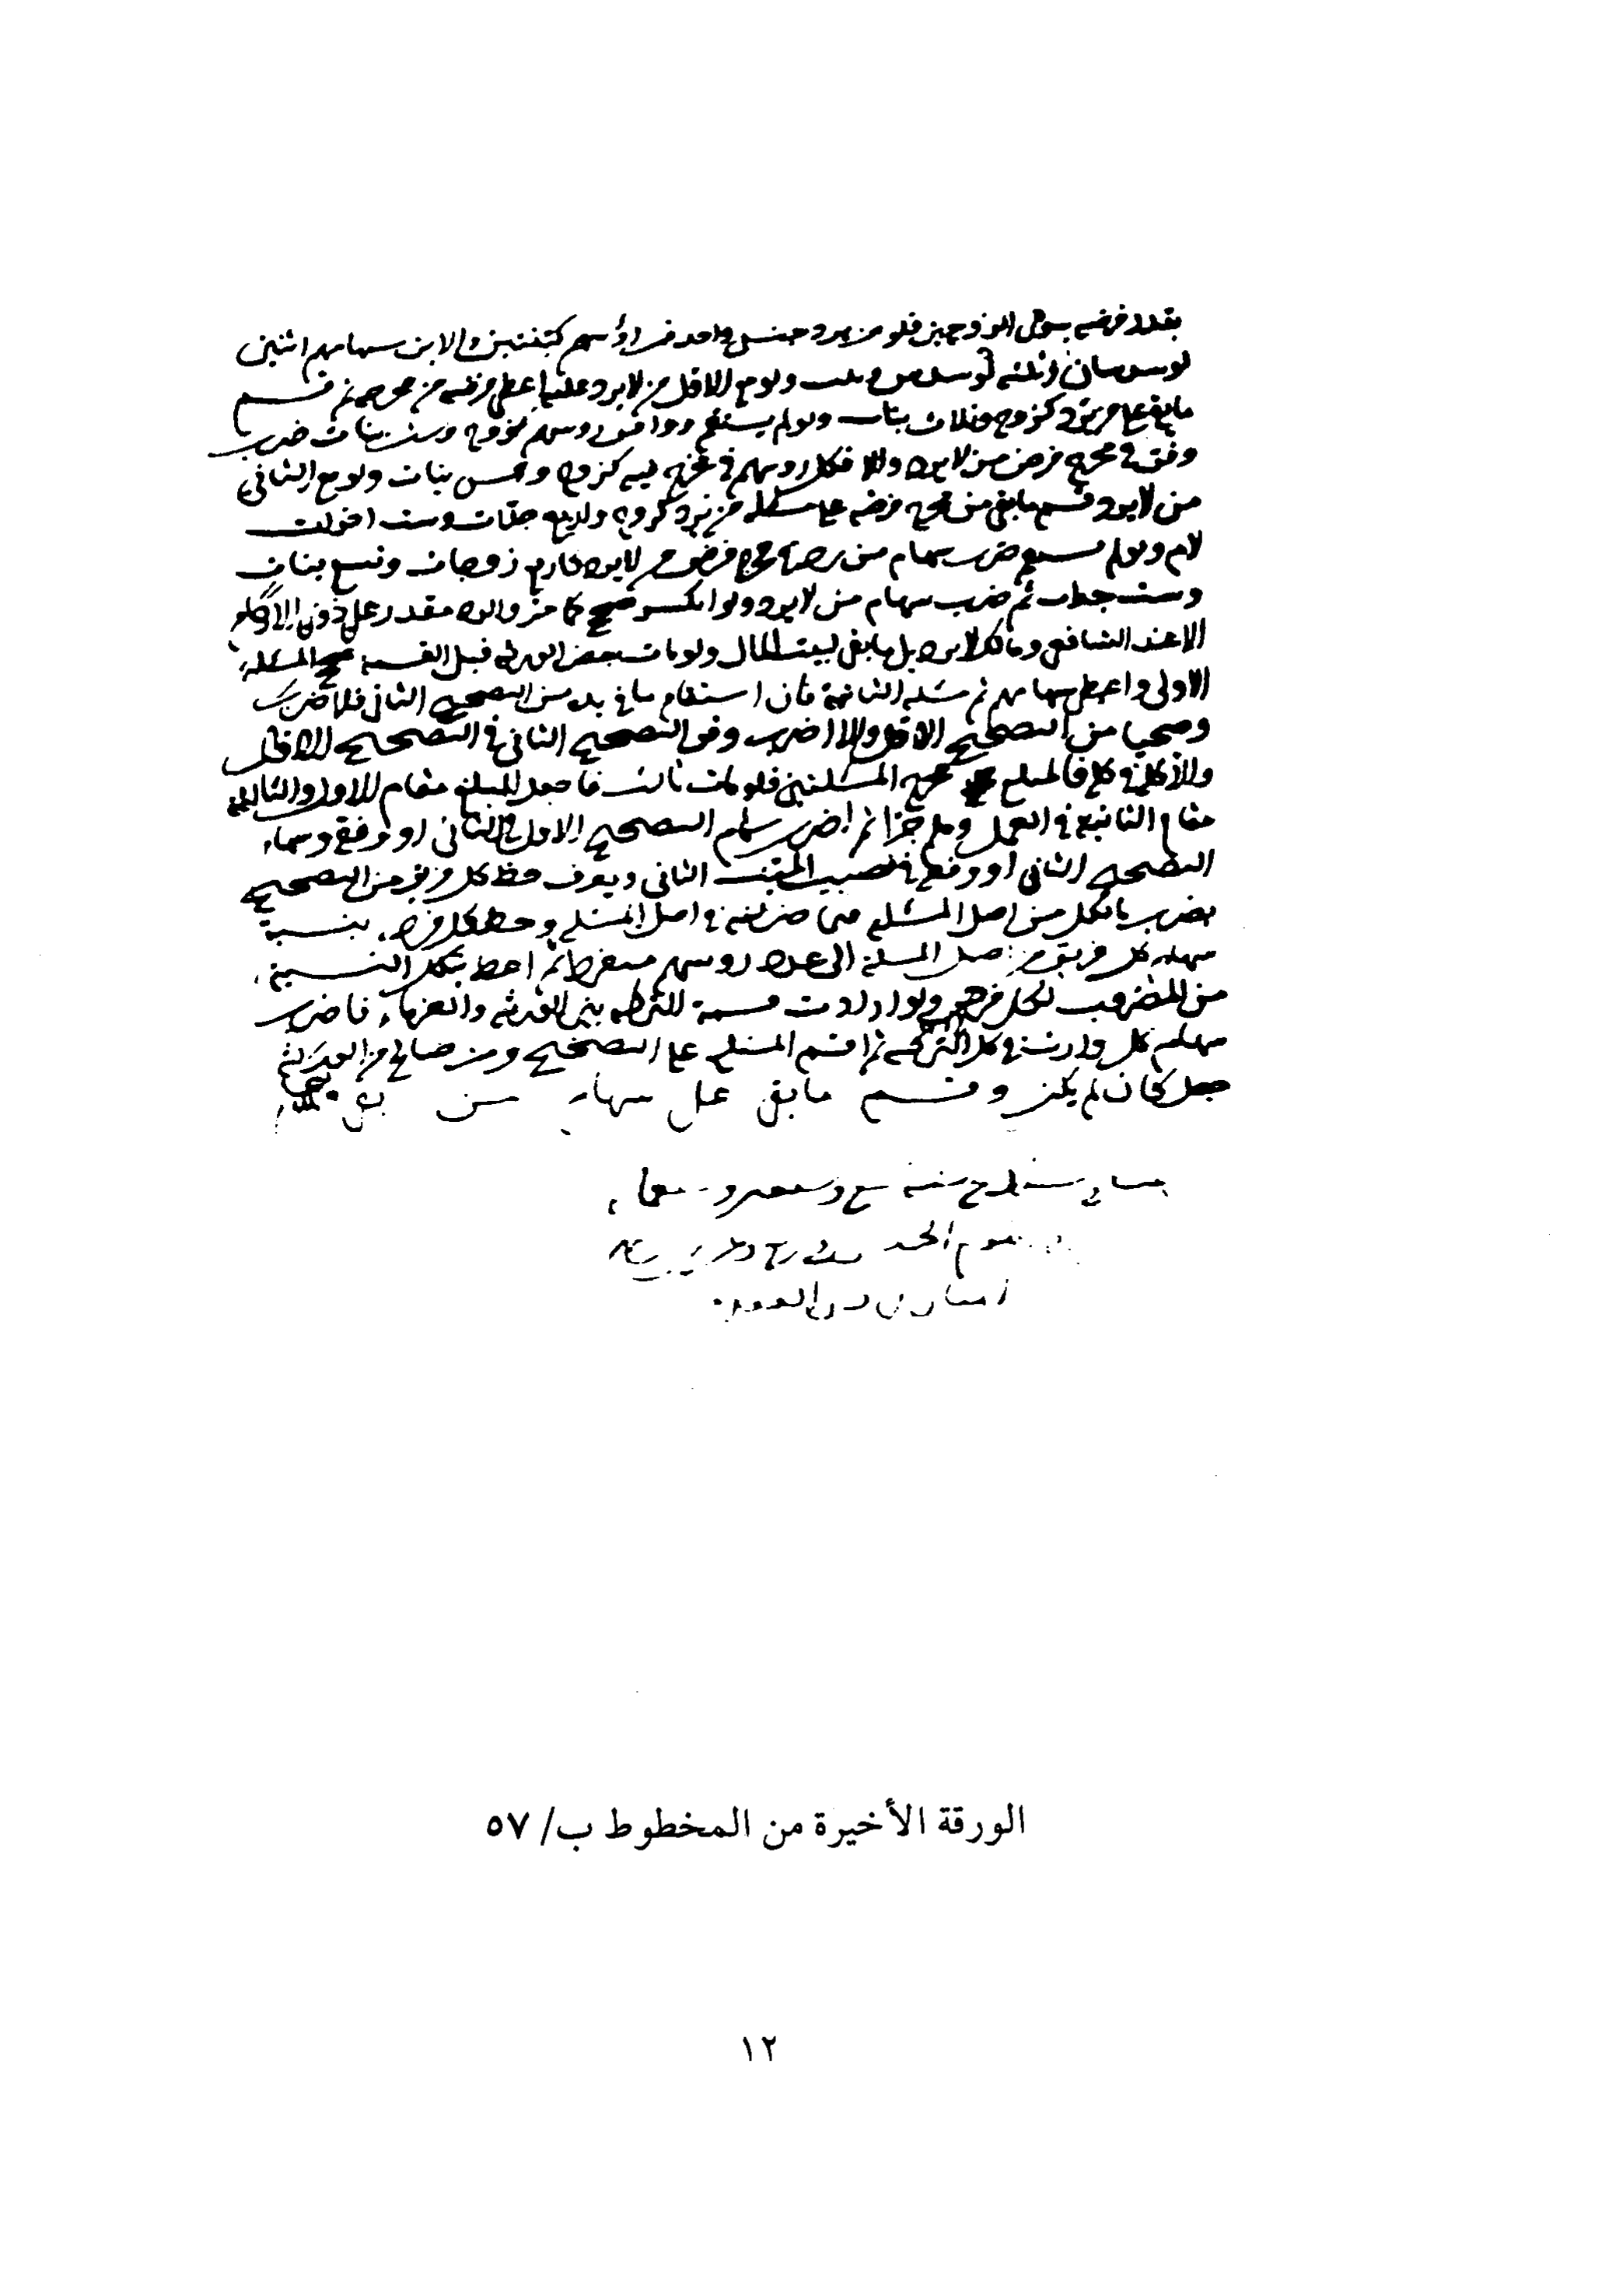 بقدر فرضه سوى الزوجين فلو من يرد جنس واحد فمن رؤسهم كبنتين والا من سهامهم اثنين
لو سدسان وثلثه لو سدس وثلث ولو مع الاول من لا يرد عليه اعطى فرضه من مخرجه ثم قسم
ما بقى على من يرد كزوج وثلاث بنات ولو لم يستقم ووافق رؤسهم كزوج وست بنات ضرب
وفق في مخرج فرض من لا يرد والا فكل رؤسهم في مخرجه كزوج وخمس بنات ولو مع الثاني
من لا يرد قسم ما بقى من مخرج فرضه على مسئلة من يرد كزوجة واربع جدات وست اخوات
لام ولو لم يستقم ضرب سهام من يرد في مخرج فرض من لا يرد كاربع زوجات وتسع بنات
وست جدات ثم ضرب سهام من لا يرد ولو انكسر صحح كما مر والرد مقدر على ذوى الارحام
الا عند الشافعي ومالك لا يرد بل ما بقى لبيت المال ولو مات بعض الورثة قبل القسمة صحح المسئلة
الاولى واعطى سهامهم ثم مسئلة الثانية فان استقام ما في يده من التصحيح الثاني فلا ضرب
وصحتا من التصحيح الاول والا اضرب وفق التصحيح الثاني في التصحيح الاول
والا كله في كله فالمبلغ مخرج المسئلتين فلو مات ثالث فاجعل المبلغ مقام الاول والثالث
مقام الثانية في العمل وهلم جرا ثم اضرب سهام التصحيح الاول في الثاني او وفقه وسهام
التصحيح الثاني او وفقه في نصيب الميت الثاني ويعرف حظ كل فريق من التصحيح
بضرب ما لكل من اصل المسئلة فيما ضربته في اصل المسئلة وحظ كل فرد بنسبة
سهام كل فريق من اصل المسئلة الى عدد رؤسهم مفردا ثم اعط بتلك النسبة
من المضروب لكل فرد ولو اردت قسمة التركة بين الورثة والغرماء فاضرب
سهام كل وارث في كل التركة ثم اقسم المبلغ على التصحيح ومن صالح من الورثة
جعل كان لم يكن وقسم ما بقى على سهام من بقى
الورقة الأخيرة من المخطوط ب/ ٥٧
١٢